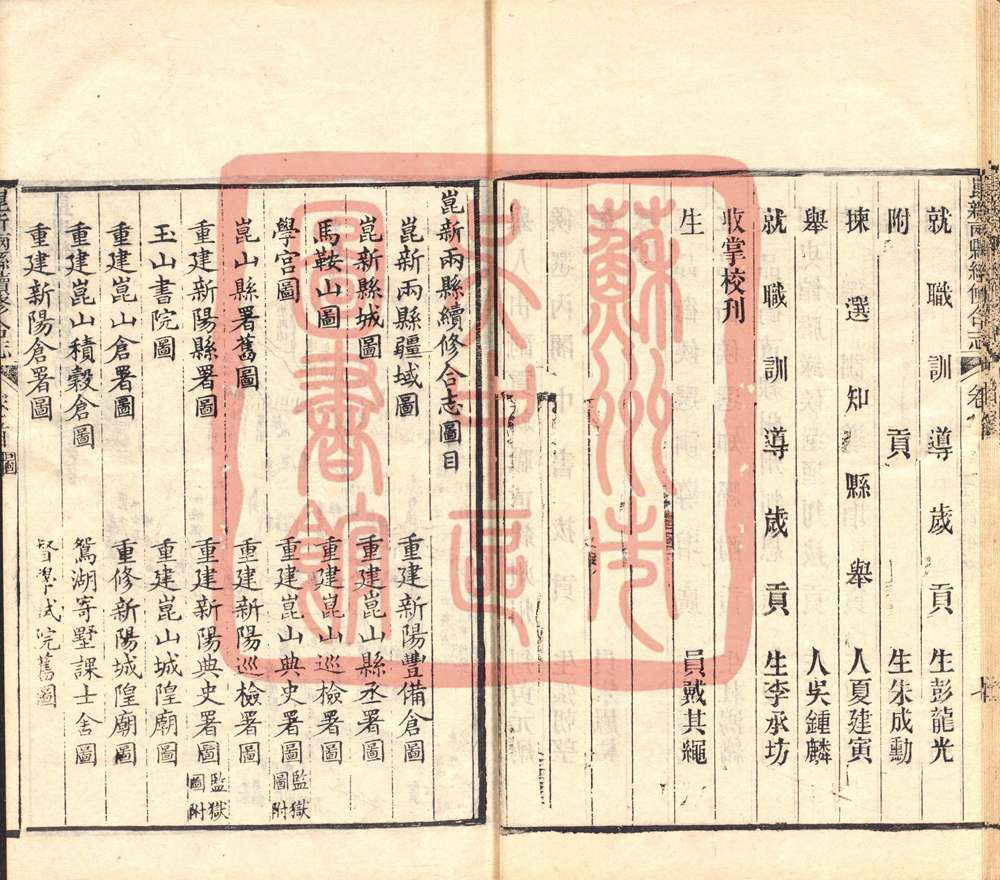 就職訓導歲貢生彭龍光
附貢生朱成勳
揀選知縣舉人夏建寅
舉人吳鍾麟
就職訓導歲貢生李承坊
收掌校刊
生員戴其繩
崑新兩縣續修合志圖目
崑新兩縣疆域圖 重建新陽豐備倉圖
崑新縣城圖 重建崑山縣丞署圖
馬鞍山圖 重建崑山巡檢署圖
學宮圖 重建崑山典史署圖 監獄圖附
崑山縣署舊圖 重建新陽巡檢署圖
重建新陽縣署圖 重建新陽典史署圖 監獄圖附
玉山書院圖 重建崑山城隍廟圖
重建崑山倉署圖 重修新陽城隍廟圖
重建崑山積穀倉圖 鴛湖寄墅課士舍圖
重建新陽倉署圖 督學試院舊圖
崑新兩縣續修合志
蘇州市
文廿區
圖書館